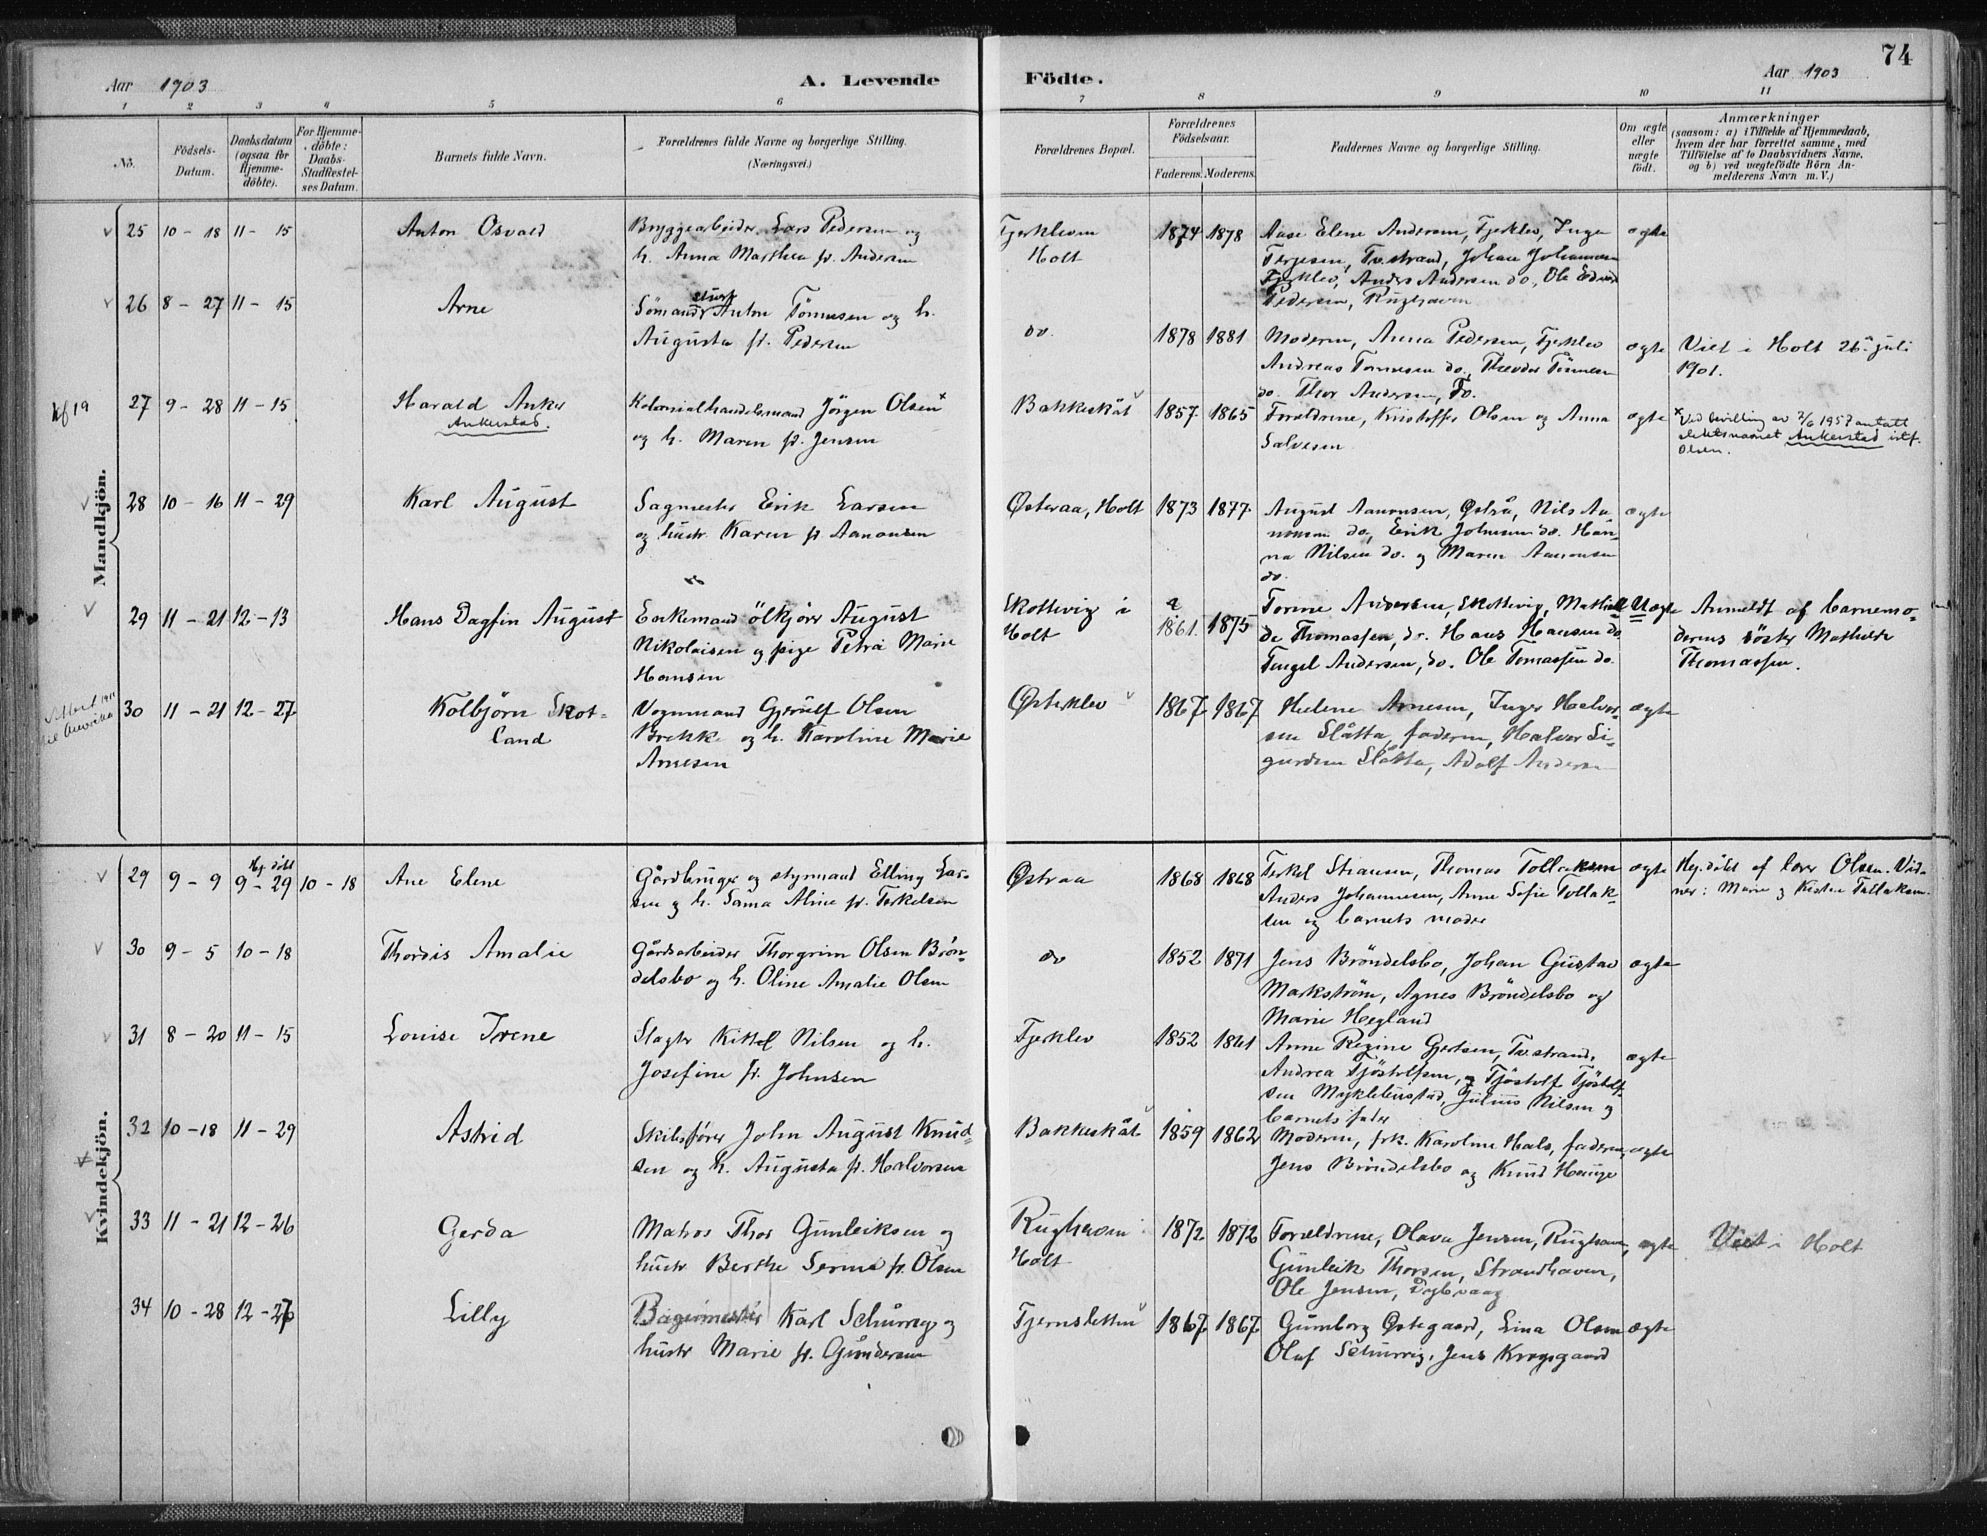 74
Aar 1903 A. Levende Födte. Aar 1903
1 2 3 4 5 6 7 8 9 10 11
No.
Födsels-Datum.
Daabsdatum (ogsaa for Hjemme-döbte).
For Hjemme-döbte: Daabs-Stadfæstelses Datum.
Barnets fulde Navn.
Forældrenes fulde Navne og borgerlige Stilling. (Næringsvei.)
Forældrenes Bopæl.
Forældrenes Födselsaar.
Faderens. Moderens.
Faddernes Navne og borgerlige Stilling.
Om ægte eller uægte födt.
Anmærkninger
(saasom: a) i Tilfælde af Hjemmedaab,
hvem der har forrettet samme, med
Tilföielse af to Daabsvidners Navne,
og b) ved uægtefödte Börn An-
melderens Navn m. V.)
Mandkjön.
25 10-18 11-15 Anton Osvald
Bryggearbeider Lars Pedersen og
h. Anna Marthea f. Andersen
Fjerkleven
Holt
1874 1878
Aase Elene Andersen, Fjerklev, Inga
Terjesen, Tv.strand, Johan Johannesen
Fjerklev, Anders Andersen do, Ole Edvard
Pedersen, Rughaven
ægte
26 8-27 11-15 Arne
Sömand Anton Tönnesen og h.
Augusta f. Pedersen
do.
1878 1881
Moderen, Anna Pedersen, Fjerklev
Andreas Tönnesen do., Theodor Tönnesen
do. Thor Andersen, Tv.
ægte
Viet i Holt 26. juli
1901.
27 9-28 11-15 Harald Anker
Ankerstad.
Kolonialhandelsmand Jörgen Olsen x
og h. Maren f. Jensen
Bakkeskåt
1857 1865
Forældrene, Kristoffer Olsen og Anna
Salvesen
ægte
x Ved bevilling av 7/6 1957 antatt
slektsnavnet Ankerstad istf.
Olsen.
28 10-16 11-29 Karl August
Sagmester Erik Larsen
og hustr. Karen f. Aanonsen
Østeraa, Holt
1873 1877
August Aanonsen, Østrå, Nils Aa-
nonsen do, Erik Johnsen do. Han-
na Nilsen do. og Maren Aanonsen
do.
ægte
29 11-21 12-13 Hans Dagfin August
Enkemand ölkjörer August
Nikolaisen og pige Petra Marie
Hansen
Skottevig i
Holt
1861. 1875
Torine Andersen, Skottevig, Mathil-
de Thomassen, do. Hans Hansen do
Tengel Andersen, do. Ole Tomassen do.
Uægte
Anmeldt af barnemo-
derens söster Mathilde
Thomassen.
til Amerika
30 11-21 12-27 Kolbjörn Skot-
land
Vognmand Gjerulf Olsen
Brekke og h. Karoline Marie
Arnesen
Østerklev
1867 1867
Helene Arnesen, Inger Halvor-
sen Slåtta, faderen, Halvor Si-
gurdsen Slåtta, Adolf Andersen
ægte
Kvindekjön.
29 9-9 Hj. döbt 9-29 10-18 Ane Elene
Gårdbruger og styrmand Elling Lar-
sen og h. Sama Aline f. Terkelsen
Østraa
1868 1868
Terkel Stiansen, Thomas Tollaksen
Anders Johannesen, Anne Sofie Tollak-
sen og barnets moder
ægte
Hj. döbt af lærer Olsen. Vid-
ner: Marie og Kirstine Tollaksen.
30 9-5 10-18 Thordis Amalie
Gårdarbeider Thorgrim Olsen Brön-
delsbo og h. Oline Amalie Olsen
do
1852 1871
Jens Bröndelsbo, Johan Gustav
Markström, Agnes Bröndelsbo og
Marie Hegland
ægte
31 8-20 11-15 Louise Irene
Slagter Kittel Nilsen og h.
Josefine f. Johnsen
Fjerklev
1852 1861
Anne Regine Gjertsen, Tv.strand,
Andrea Tjöstolfsen, og Tjöstolf Tjöstolf-
sen Myklebustad, Julius Nilsen og
barnets fader
ægte
32 10-18 11-29 Astrid
Skibsförer John August Knud-
sen og h. Augusta f. Halvorsen
Bakkeskåt
1859 1862
Moderen, frk. Karoline Hals, faderen,
Jens Bröndelsbo og Knud Hauge
ægte
33 11-21 12-26 Gerda
Matros Thor Gunleiksen og
hustr Berthe Serine f. Olsen
Rughaven
Holt
1872 1872
Forældrene, Olava Jensen, Rughaven,
Gunleik Thorsen, Strandhaven,
Ole Jensen, Dybvaag
ægte
Viet i Holt
34 10-28 12-26 Lilly
Bagermester Karl Schurrig og
hustr Marie f. Gundersen
Tjernsletten
1867 1867
Gunborg Østegaard, Lina Olsen
Oluf Schurrig, Jens Krogsgaard
ægte